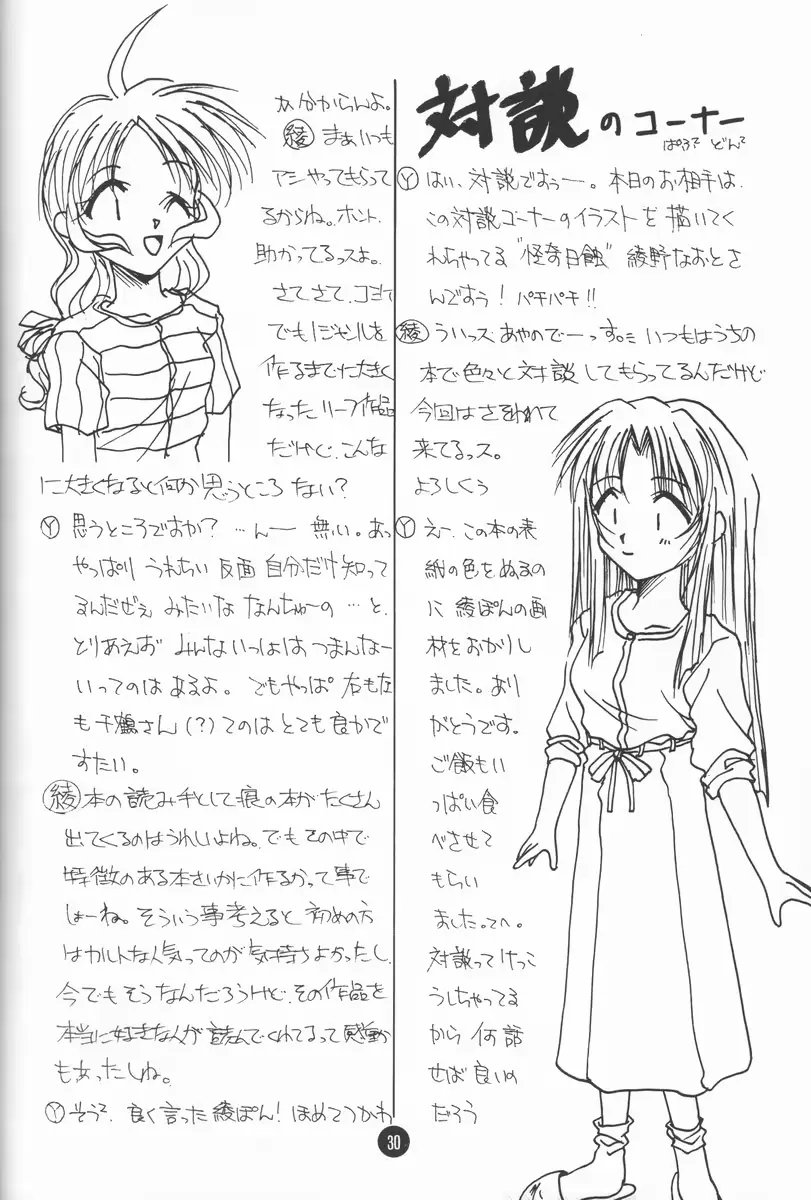 対談のコーナー
ぱろで どんで
Ⓨ はい、対談ですぅー。本日のお相手は、
この対談コーナーのイラストを描いてく
れちゃってる"怪奇日蝕" 綾野なおとさ
んですぅ! パチパチ!!
綾 ういっス。あやのでーっす。いつもはうちの
本で色々と対談してもらってるんだけど
今回はさそわれて
来てるっス。
よろしくぅ
Ⓨ えー、この本の表
紙の色をぬるの
に綾ぽんの画
材をおかりし
ました。あり
がとうです。
ご飯もい
っぱい食
べさせて
もらい
ました。てへ。
対談ってけっこ
うしちゃってる
から何話
せば良いの
だろう
か分からんよ。
綾 まぁいつも
アシやってもらって
るからね。ホント、
助かってるっスよ。
さてさて、コミケ
でも1ジャンルを
作るまでに大きく
なったリーフ作品
だけど、こんな
に大きくなると何か思うところ ない?
Ⓨ 思うところですか? …んー 無い。あっ
やっぱり うれちい 反面 自分だけ知って
るんだぜぇ みたいな なんちゅーの …と、
とりあえお みんないっはは つまんなー
いってのはあるよ。 でもやっぱ 右も左
も千鶴さん(?)てのは とても良かで
すたい。
綾 本の読み手として痕の本がたくさん
出てくるのはうれしいよね。でもその中で
特徴のある本をいかに作るかって事で
しょーね。そういう事考えると 初めの方
はカルトな人気ってのが気持ちよかったし、
今でもそうなんだろうけど、その作品を
本当に好きな人が読んでくれてるって感動
もあったしね。
Ⓨ そうで、良く言った綾ぽん! ほめてつかわ
30